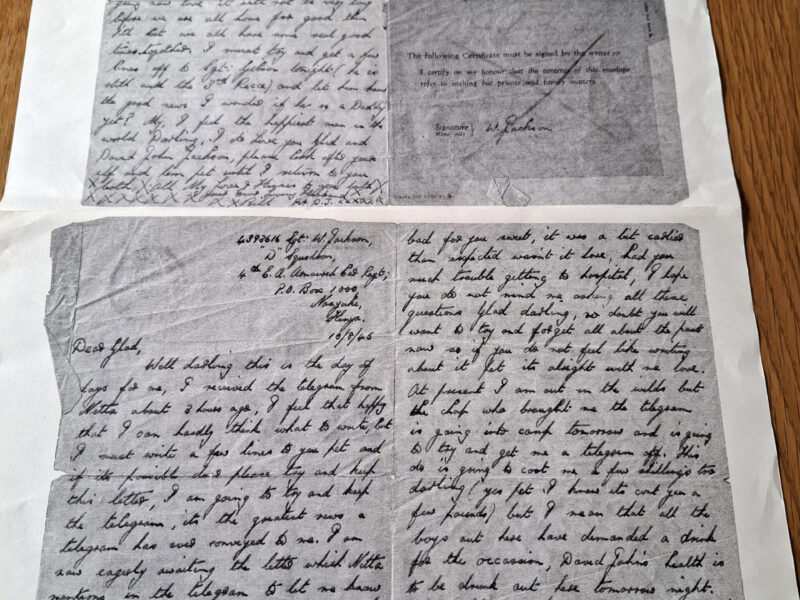 going now love it will not be very long
before we are all home for good then
I'll bet we all have some real good
times together. I must try and get a few
lines off to Sgt. Gibson tonight (he is
still with the 3rd Recce) and let him know
the good news I wonder if he is a Daddy
yet? My, I feel the happiest man in the
world Darling, I do Love you Glad and
David John Jackson, please look after your
self and him pet until I return to you
both. All My Love & Kisses to you both
The following Certificate must be signed by the writer :—
I certify on my honour that the contents of this envelope
refer to nothing but private and family matters.
Signature }
Name only
W. Jackson
4393616 Sgt. W. Jackson,
"D" Squadron,
4th E. A. Armoured Car Regt;
P.O. Box 1000,
Nanyuki,
Kenya.
10/9/45
Dear Glad,
Well darling this is the day of
days for me, I received the telegram from
Netta about 3 hours ago, I feel that happy
that I can hardly think what to write, but
I must write a few lines to you pet and
if its possible dear please try and keep
this letter, I am going to try and keep
the telegram, its the greatest news a
telegram has ever conveyed to me. I am
now eagerly awaiting the letter which Netta
mentions in the telegram to let me know
bad for you sweet, it was a bit earlier
than expected wasn't it love, had you
much trouble getting to hospital, I hope
you do not mind me asking all these
questions Glad darling, no doubt you will
want to try and forget all about the past
now so if you do not feel like writing
about it pet its alright with me love.
At present I am out in the wilds but
the chap who brought me the telegram
is going into camp tomorrow and is going
to try and get me a telegram off. This
do is going to cost me a few shillings too
darling (yes pet I know its cost you a
few pounds) but I mean that all the
boys out here have demanded a drink
for the occasion, David John's health is
to be drunk out here tomorrow night.